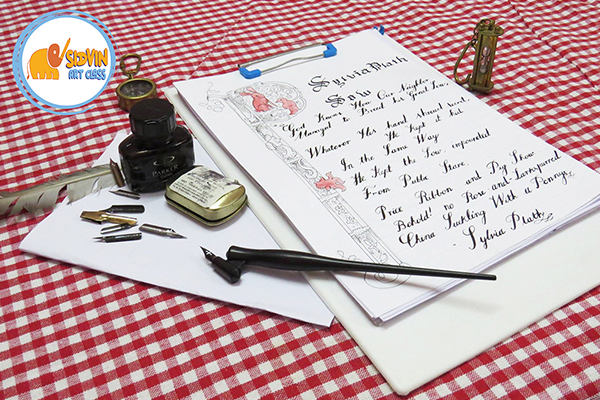 SIDVIN
ART CLASS
PARKER
Sylvia Plath
Sow
God Knows How Our Neighbor
to Breed his Great Sow,
Whatever His hand shrewd
He Kept it hid
In the Same Way
He Kept the Sow impounded
From Stare,
Ribbon and Pig Show
Behold! no Rose and Larkspurred
China Suckling With a Penny
- Sylvia Plath